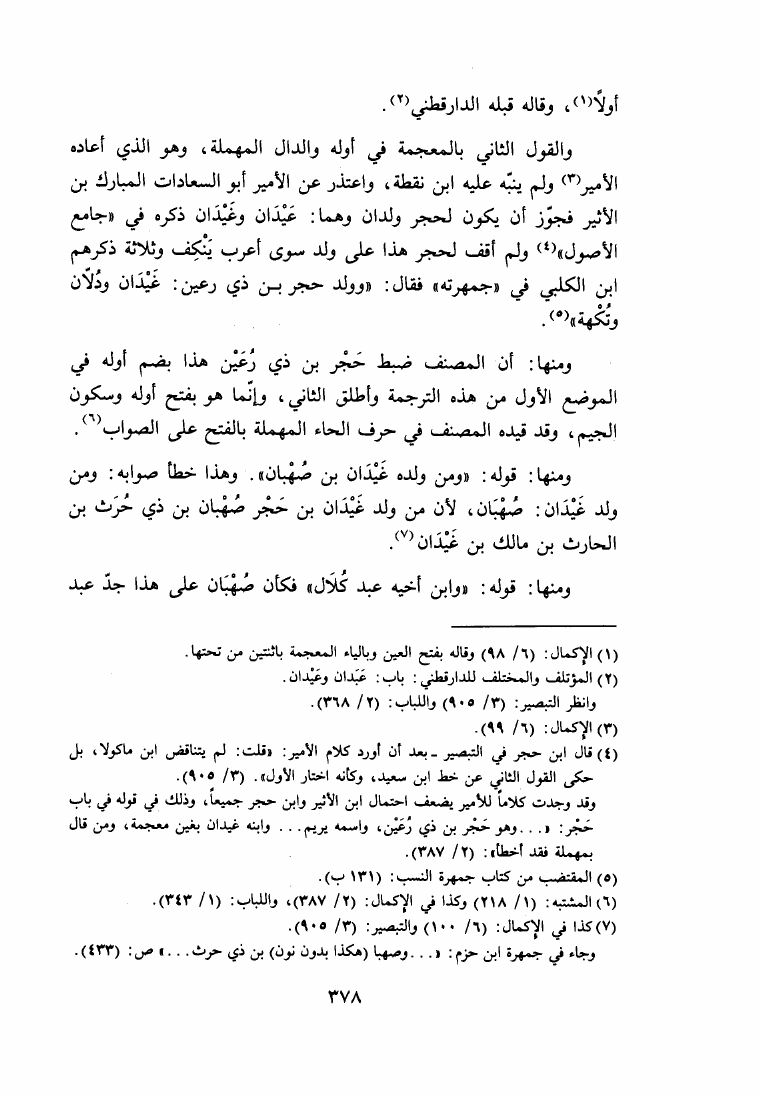 أولاً(١)، وقاله قبله الدارقطني(٢).
والقول الثاني بالمعجمة في أوله والدال المهملة، وهو الذي أعاده
الأمير(٣) ولم ينبّه عليه ابن نقطة، واعتذر عن الأمير أبو السعادات المبارك بن
الأثير فجوّز أن يكون لحجر ولدان وهما: عَيْدَان وغَيْدَان ذكره في «جامع
الأصول»(٤) ولم أقف لحجر هذا على ولد سوى أعرب يَنْكِف وثلاثة ذكرهم
ابن الكلبي في «جمهرته» فقال: «وولد حجر بـن ذي رعين: غَيْدَان ودُلَّان
وتُكْهة»(٥).
ومنها: أن المصنف ضبط حَجْر بن ذي رُعَيْن هذا بضم أوله في
الموضع الأول من هذه الترجمة وأطلق الثاني، وإنّما هو بفتح أوله وسكون
الجيم، وقد قيده المصنف في حرف الحاء المهملة بالفتح على الصواب(٦).
ومنها: قوله: «ومن ولده غَيْدَان بن صُهْبان». وهذا خطأ صوابه: ومن
ولد غَيْدَان: صُهْبَان، لأن من ولد غَيْدَان بن حَجْر صُهْبان بن ذي حُرَث بن
الحارث بن مالك بن غَيْدَان(٧).
ومنها: قوله: «وابن أخيه عبد كُلَال» فكأن صُهْبَان على هذا جدّ عبد
(١) الإكمال: (٦/ ٩٨) وقاله بفتح العين وبالياء المعجمة باثنتين من تحتها.
(٢) المؤتلف والمختلف للدارقطني: باب: عَبَدان وعَيْدان.
وانظر التبصير: (٣/ ٩٠٥) واللباب: (٢/ ٣٦٨).
(٣) الإكمال: (٦/ ٩٩).
(٤) قال ابن حجر في التبصير ـ بعد أن أورد كلام الأمير: «قلت: لم يتناقض ابن ماكولا، بل
حكى القول الثاني عن خط ابن سعيد، وكأنه اختار الأول». (٣/ ٩٠٥).
وقد وجدت كلاماً للأمير يضعف احتمال ابن الأثير وابن حجر جميعاً، وذلك في قوله في باب
حَجْر: «...وهو حَجْر بن ذي رُعَيْن، واسمه يريم... وابنه غيدان بغين معجمة، ومن قال
بمهملة فقد أخطأ»: (٢/ ٣٨٧).
(٥) المقتضب من كتاب جمهرة النسب: (١٣١ ب).
(٦) المشتبه: (١/ ٢١٨) وكذا في الإكمال: (٢/ ٣٨٧)، واللباب: (١/ ٣٤٣).
(٧) كذا في الإكمال: (٦/ ١٠٠) والتبصير: (٣/ ٩٠٥).
وجاء في جمهرة ابن حزم: «...وصهبا (هكذا بدون نون) بن ذي حرث...» ص: (٤٣٣).
٣٧٨